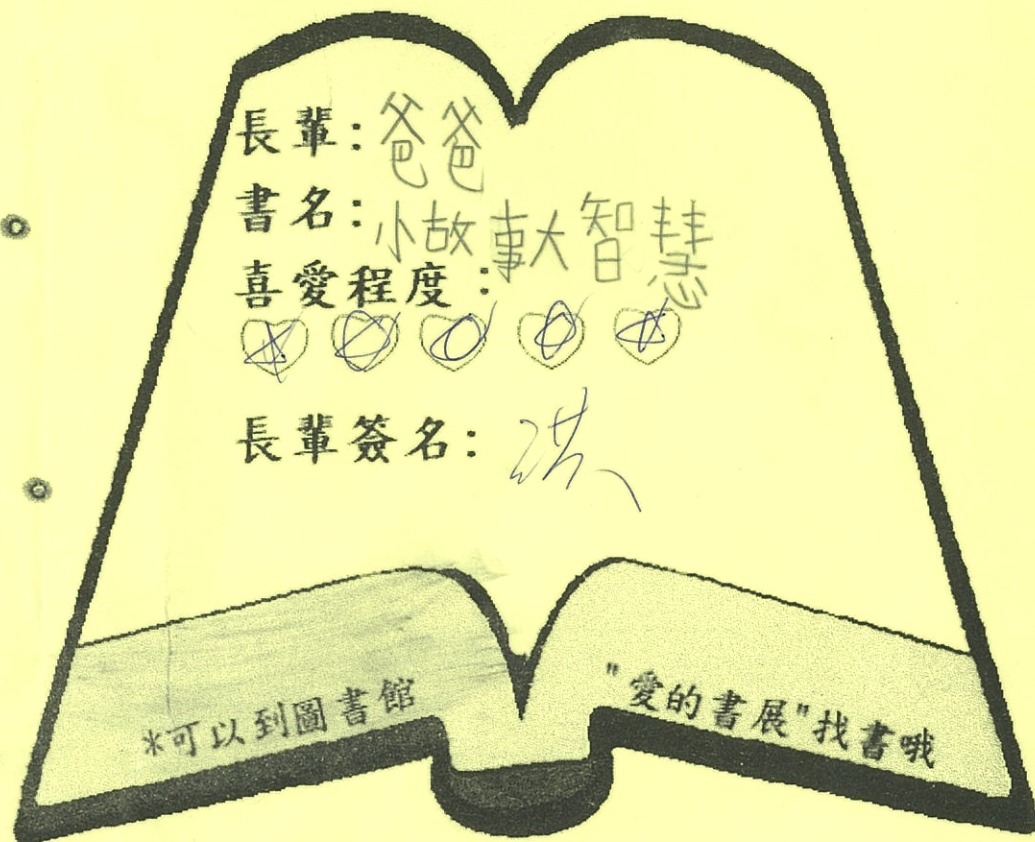 長輩：爸爸
書名：小故事大智慧
喜愛程度：
長輩簽名：洪
*可以到圖書館
"愛的書展"找書哦